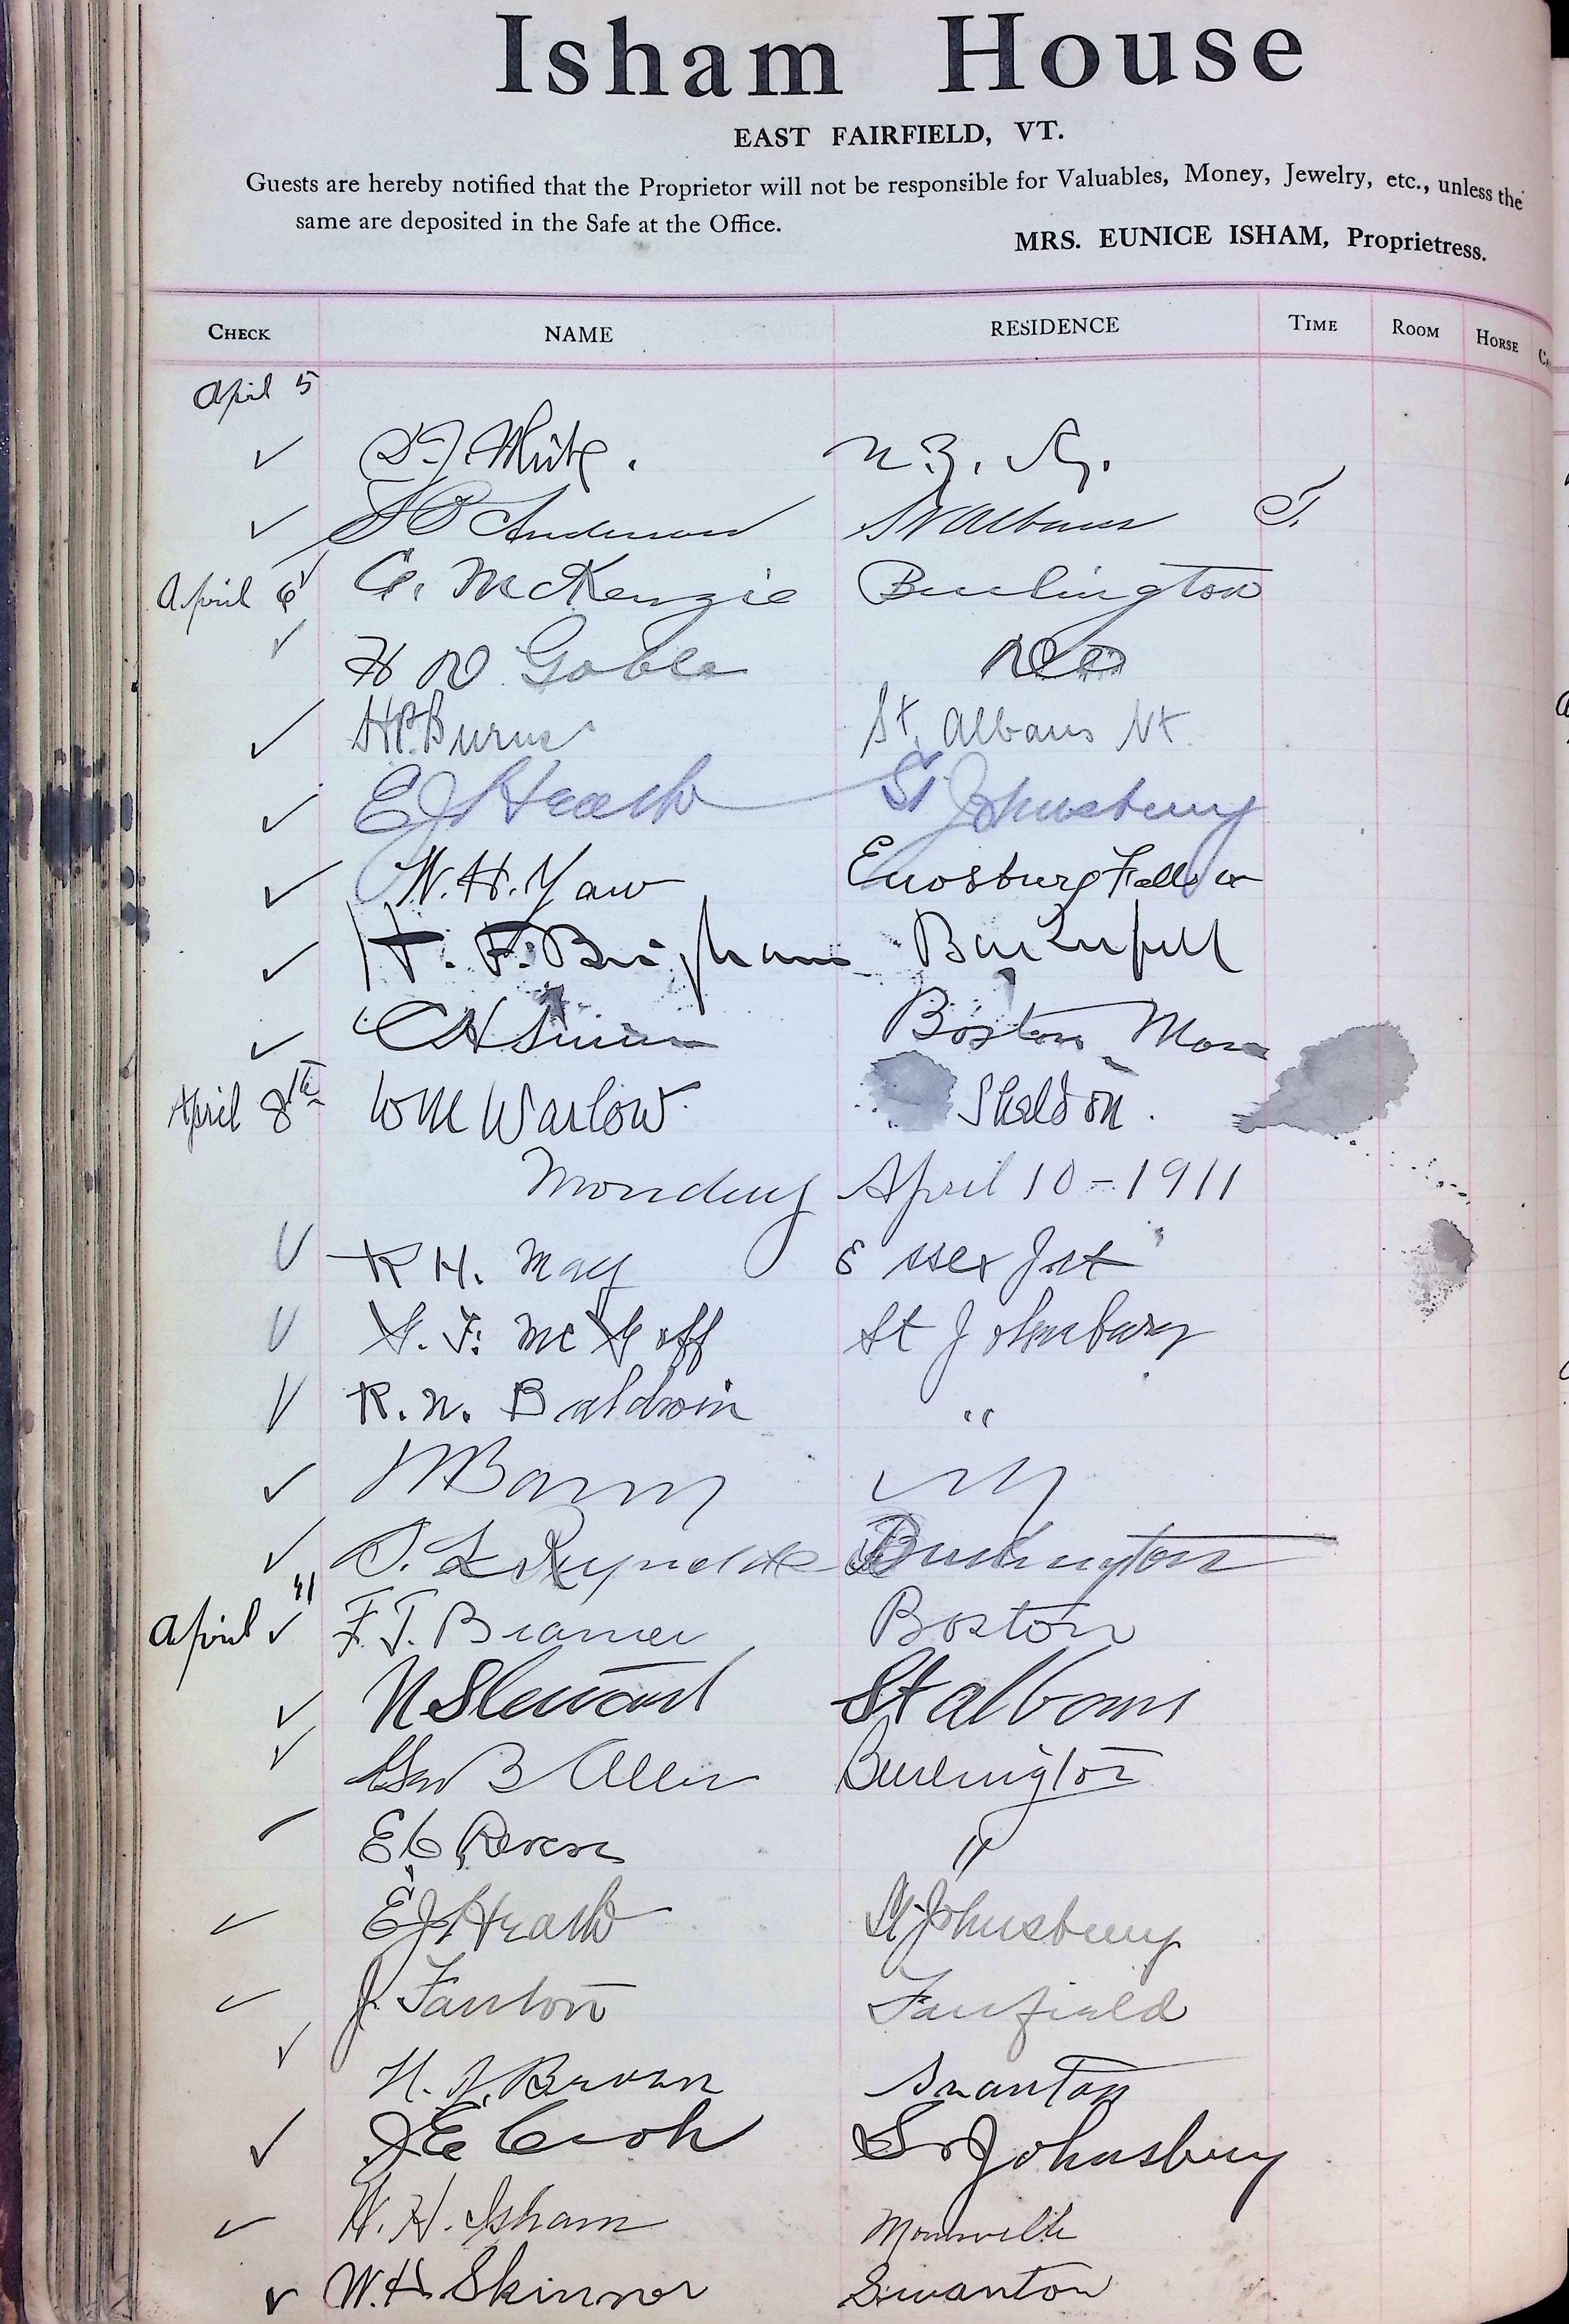 Isham House
EAST FAIRFIELD, VT.
Guests are hereby notified that the Proprietor will not be responsible for Valuables, Money, Jewelry, etc., unless the
same are deposited in the Safe at the Office.
MRS. EUNICE ISHAM, Proprietress.
CHECK NAME RESIDENCE TIME ROOM HORSE
April 5
White. N. Y.
Anderson St Albans T.
April 6 McKenzie Burlington
H N Goble
H.P. Burns St. Albans Vt.
EJ Heath St Johnsbury
W. H. Yaw Enosburg Falls
H. F. Brigham Bakersfield
CH Boston Mass
April 8th Wm Warlow Sheldon.
Monday April 10-1911
R H. May Essex Jct
G. F. McGoff St Johnsbury
R. N. Baldwin "
N Y
Reynolds Burlington
April 11 F. T. Boston
N Stewart St albans
Geo B Allen Burlington
E C "
EJ Heath St Johnsbury
J. Fanton Fairfield
H. Brown Swanton
J E Cook St Johnsbury
W. H. Isham Morrisville
W. H. Skinner Swanton